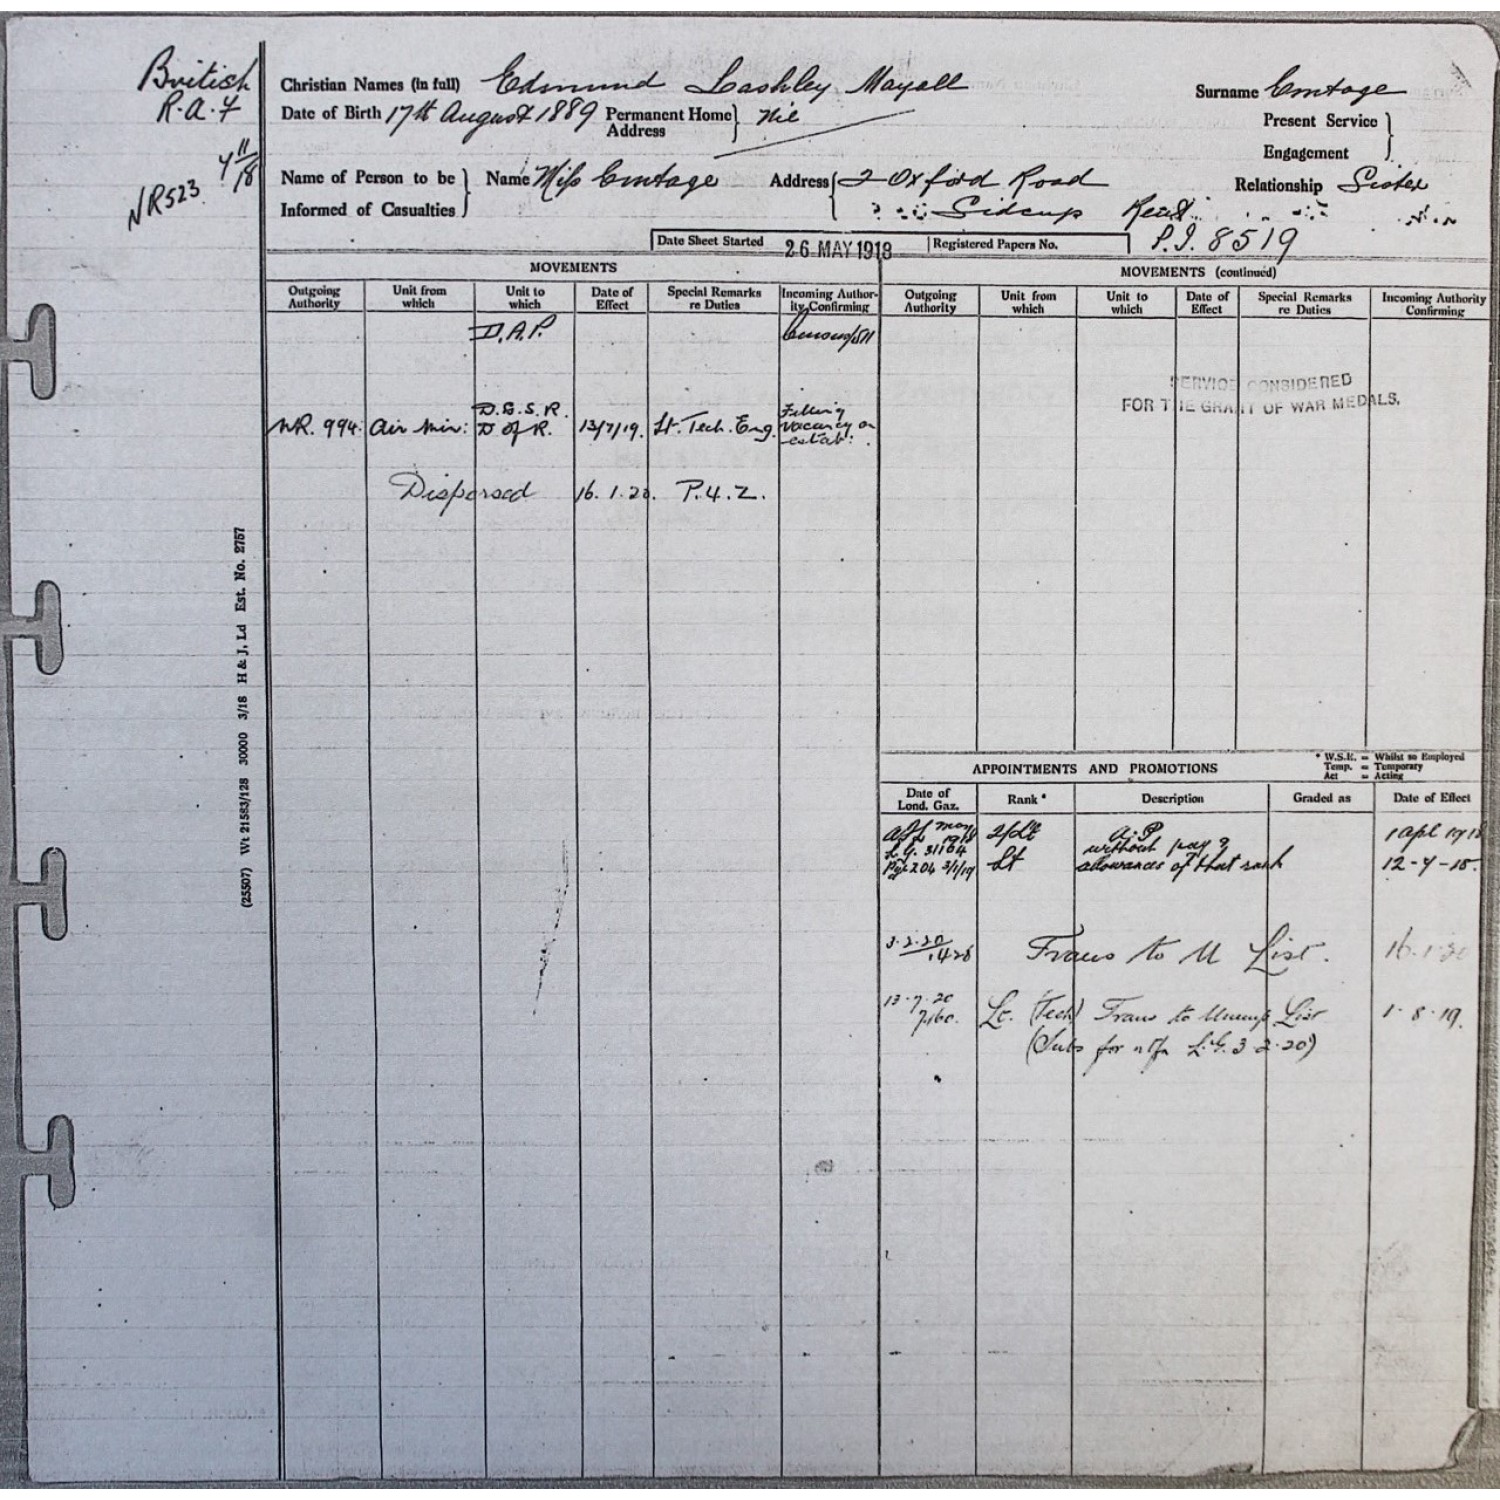 British
R.A.F
4/11/18
NR523
Christian Names (in full) Edmund Lashley Mayall
Surname Emtage
Date of Birth 17th August 1889 Permanent Home Address } Nil
Present Service }
Engagement
Name of Person to be Informed of Casualties } Name Miss Emtage Address { 2 Oxford Road
Relationship Sister
Sidcup Kent
Date Sheet Started 26 MAY 1918 Registered Papers No. P.I. 8519
MOVEMENTS
MOVEMENTS (continued)
Outgoing Authority Unit from which Unit to which Date of Effect Special Remarks re Duties Incoming Authority Confirming
Outgoing Authority Unit from which Unit to which Date of Effect Special Remarks re Duties Incoming Authority Confirming
D.A.P.
SERVICE CONSIDERED
FOR THE GRANT OF WAR MEDALS.
NR. 994. Air Min: D. of R. 13/7/19. Lt. Tech. Eng. Filling vacancy on estab:.
Dispersed 16.1.20. P.4.2.
(25507) Wt 21583/128 30000 3/18 H & J, Ld Est. No. 2757
APPOINTMENTS AND PROMOTIONS
* W.S.E. = Whilst so Employed
Temp. = Temporary
Act = Acting
Date of Lond. Gaz. Rank * Description Graded as Date of Effect
May 1918 2/Lt A.P 1 Apl 1918
L.G. 31104 without pay &
Pge 204 3/1/19 Lt allowances of that rank
3.2.20 / 1428 Trans to U List. 16.1.20
13.7.20 Lt. (Tech) Trans to Unemp List 1.8.19.
(Subs for L.G. 3.2.20)